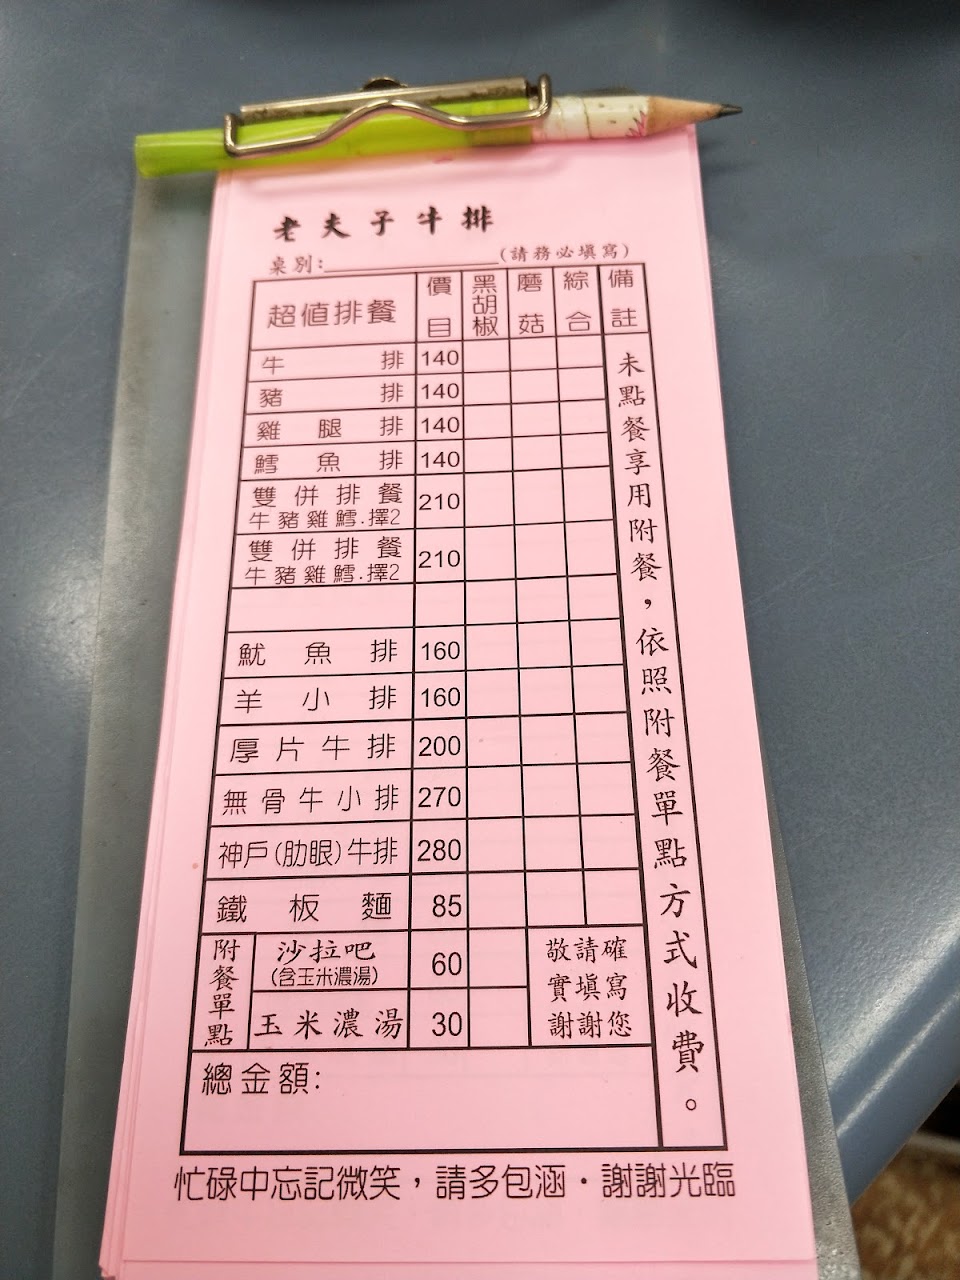 老夫子牛排
桌別:＿＿＿＿＿＿＿(請務必填寫)
超值排餐 價目 黑胡椒 蘑菇 綜合 備註
牛排 140
豬排 140
雞腿排 140
鱈魚排 140
雙併排餐 210
牛豬雞鱈.擇2
雙併排餐 210
牛豬雞鱈.擇2
魷魚排 160
羊小排 160
厚片牛排 200
無骨牛小排 270
神戶(肋眼)牛排 280
鐵板麵 85
附餐單點
沙拉吧 60
(含玉米濃湯)
玉米濃湯 30
敬請確
實填寫
謝謝您
未點餐享用附餐，依照附餐單點方式收費。
總金額:
忙碌中忘記微笑，請多包涵．謝謝光臨